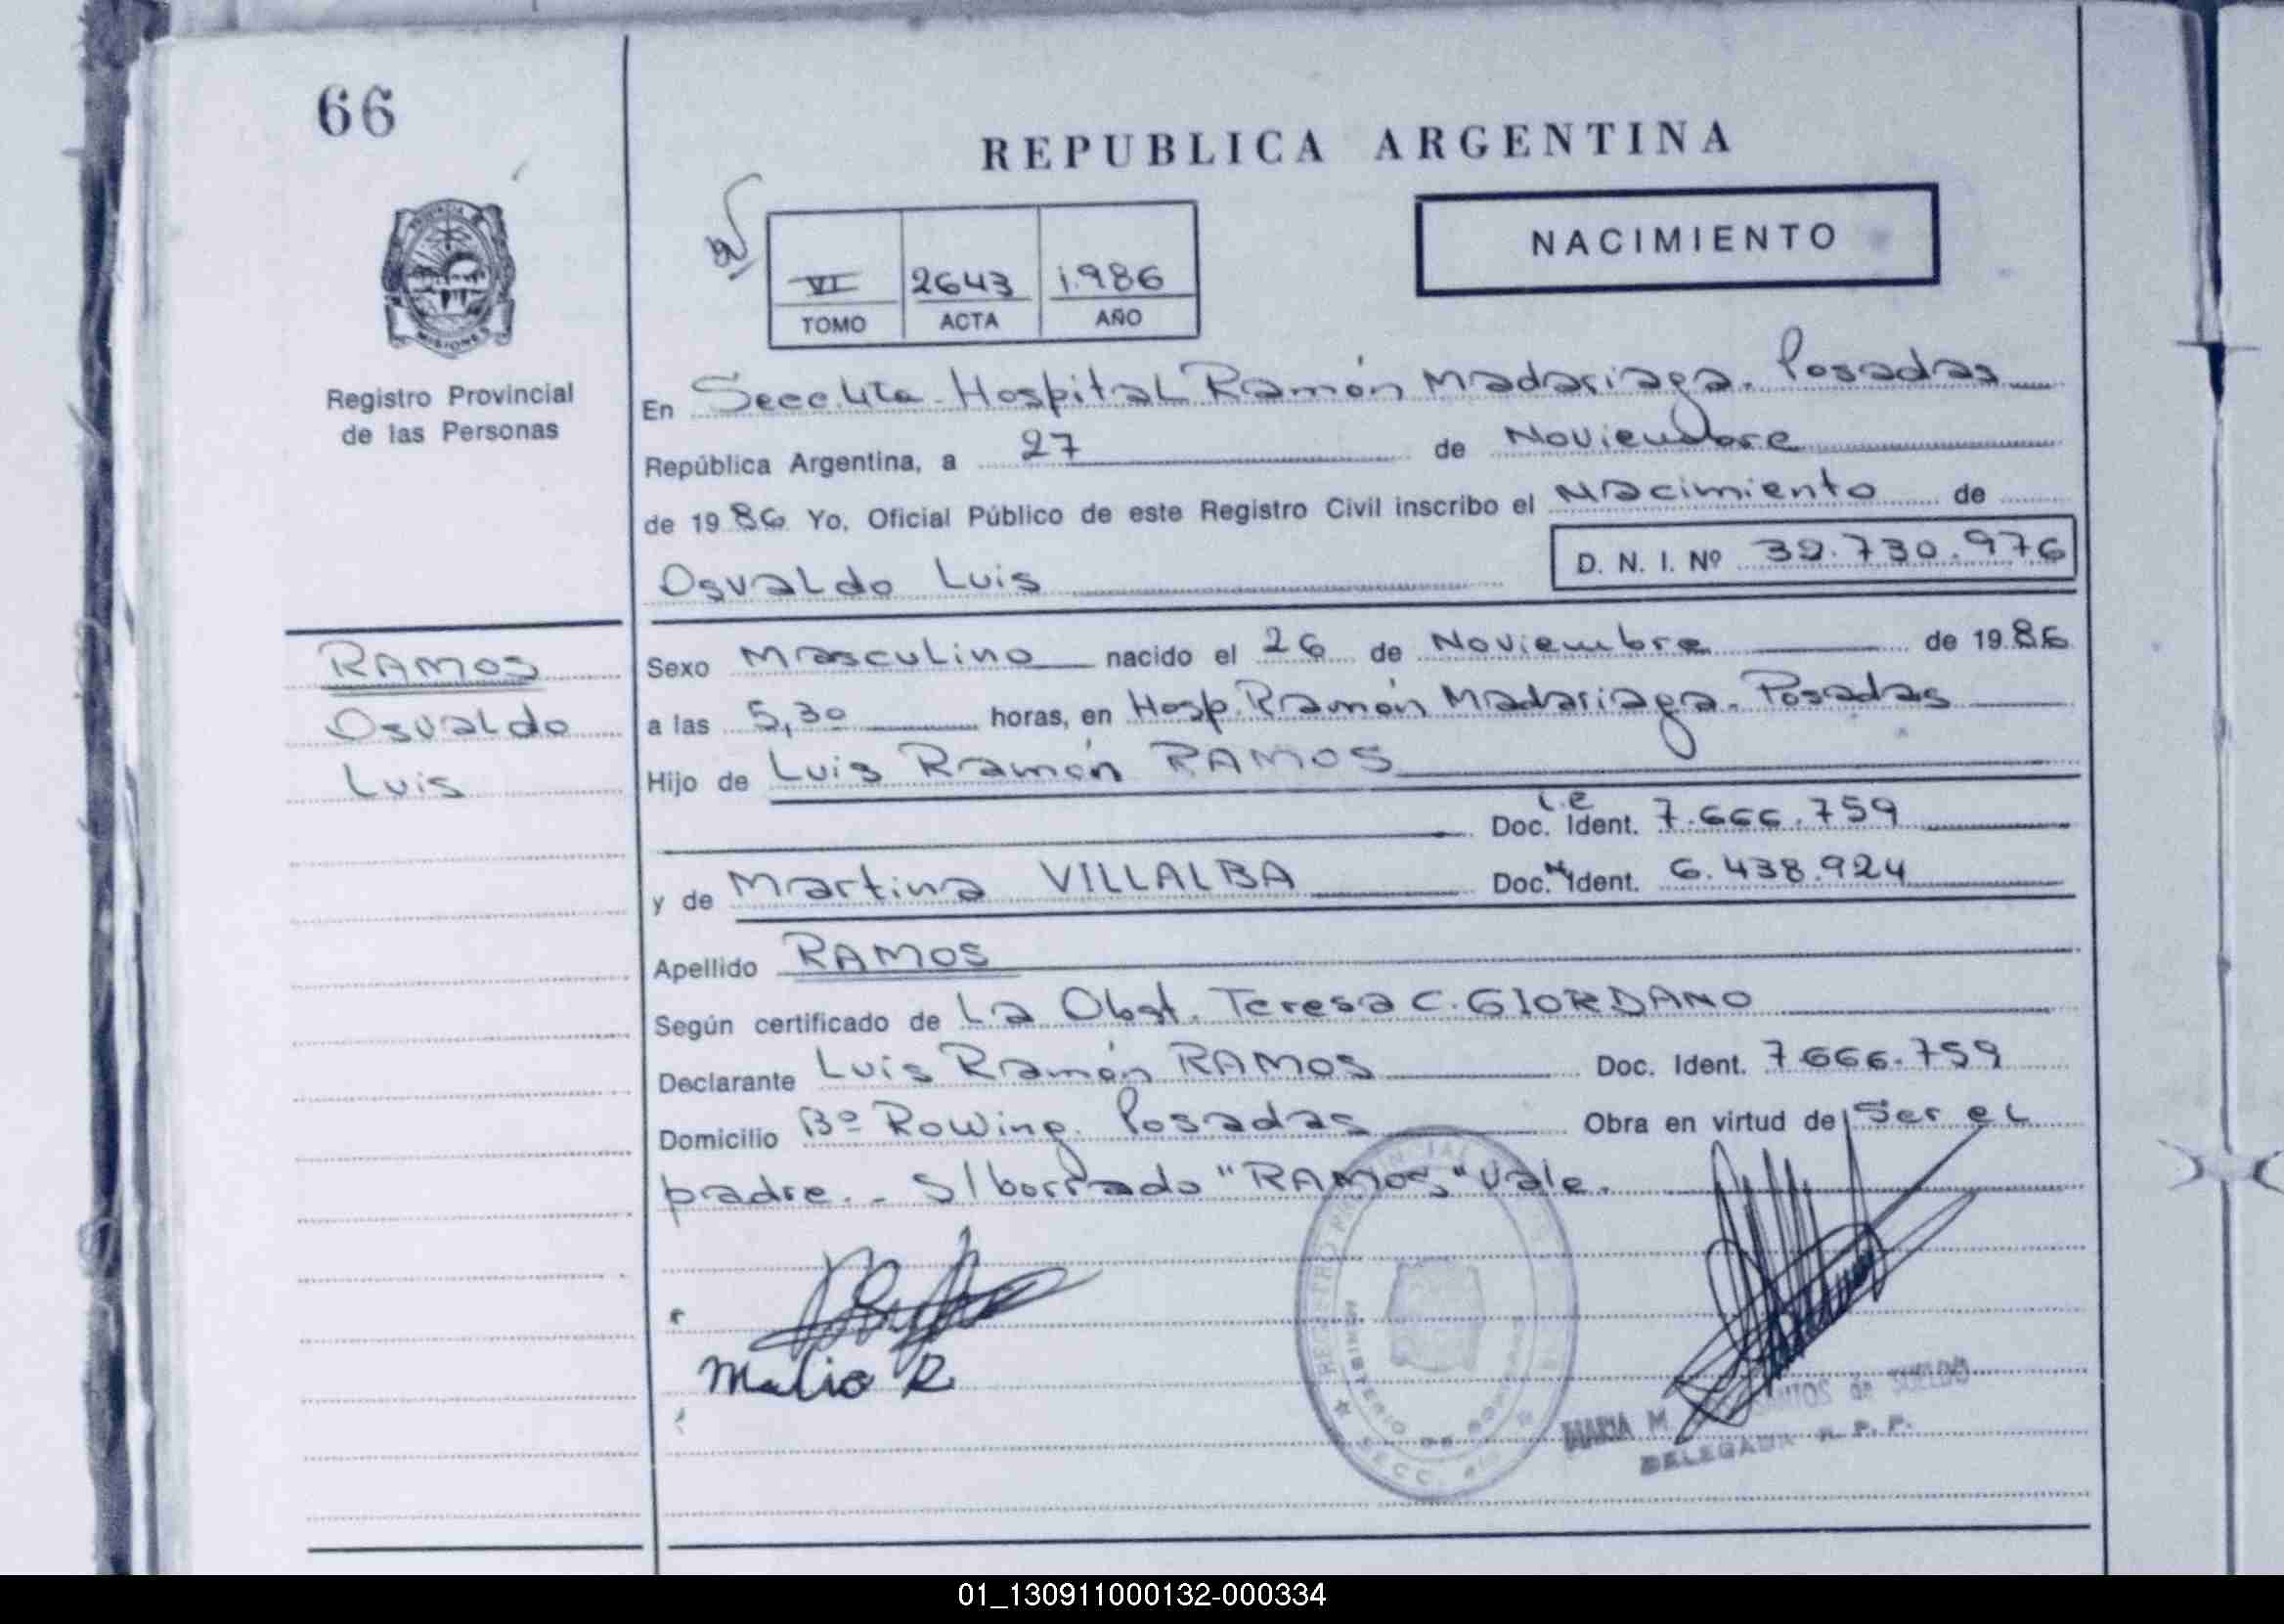 66
REPUBLICA ARGENTINA
NACIMIENTO
VI 2643 1.986
TOMO ACTA AÑO
PROVINCIA DE
MISIONES
Registro Provincial
de las Personas
En Secc. 4ta - Hospital Ramón Madariaga. Posadas
República Argentina, a 27 de Noviembre
de 19 86 Yo, Oficial Público de este Registro Civil inscribo el Nacimiento de
Osvaldo Luis
D. N. I. Nº 32.730.976
RAMOS
Osvaldo
Luis
Sexo Masculino nacido el 26 de Noviembre de 19 86
a las 5,30 horas, en Hosp. Ramón Madariaga. Posadas
Hijo de Luis Ramón RAMOS
L.E
Doc. Ident. 7.666.759
y de Martina VILLALBA Doc. Ident. 6.438.924
Apellido RAMOS
Según certificado de La Obst. Teresa C. GIORDANO
Declarante Luis Ramón RAMOS Doc. Ident. 7.666.759
Domicilio Bº Rowing. Posadas Obra en virtud de Ser el
padre. - S/borrado "RAMOS" Vale.
REGISTRO
MINISTERIO DE GOBIERNO
SECC.
MARIA M. de SUELDO
DELEGADA R. P. P.
01_130911000132-000334